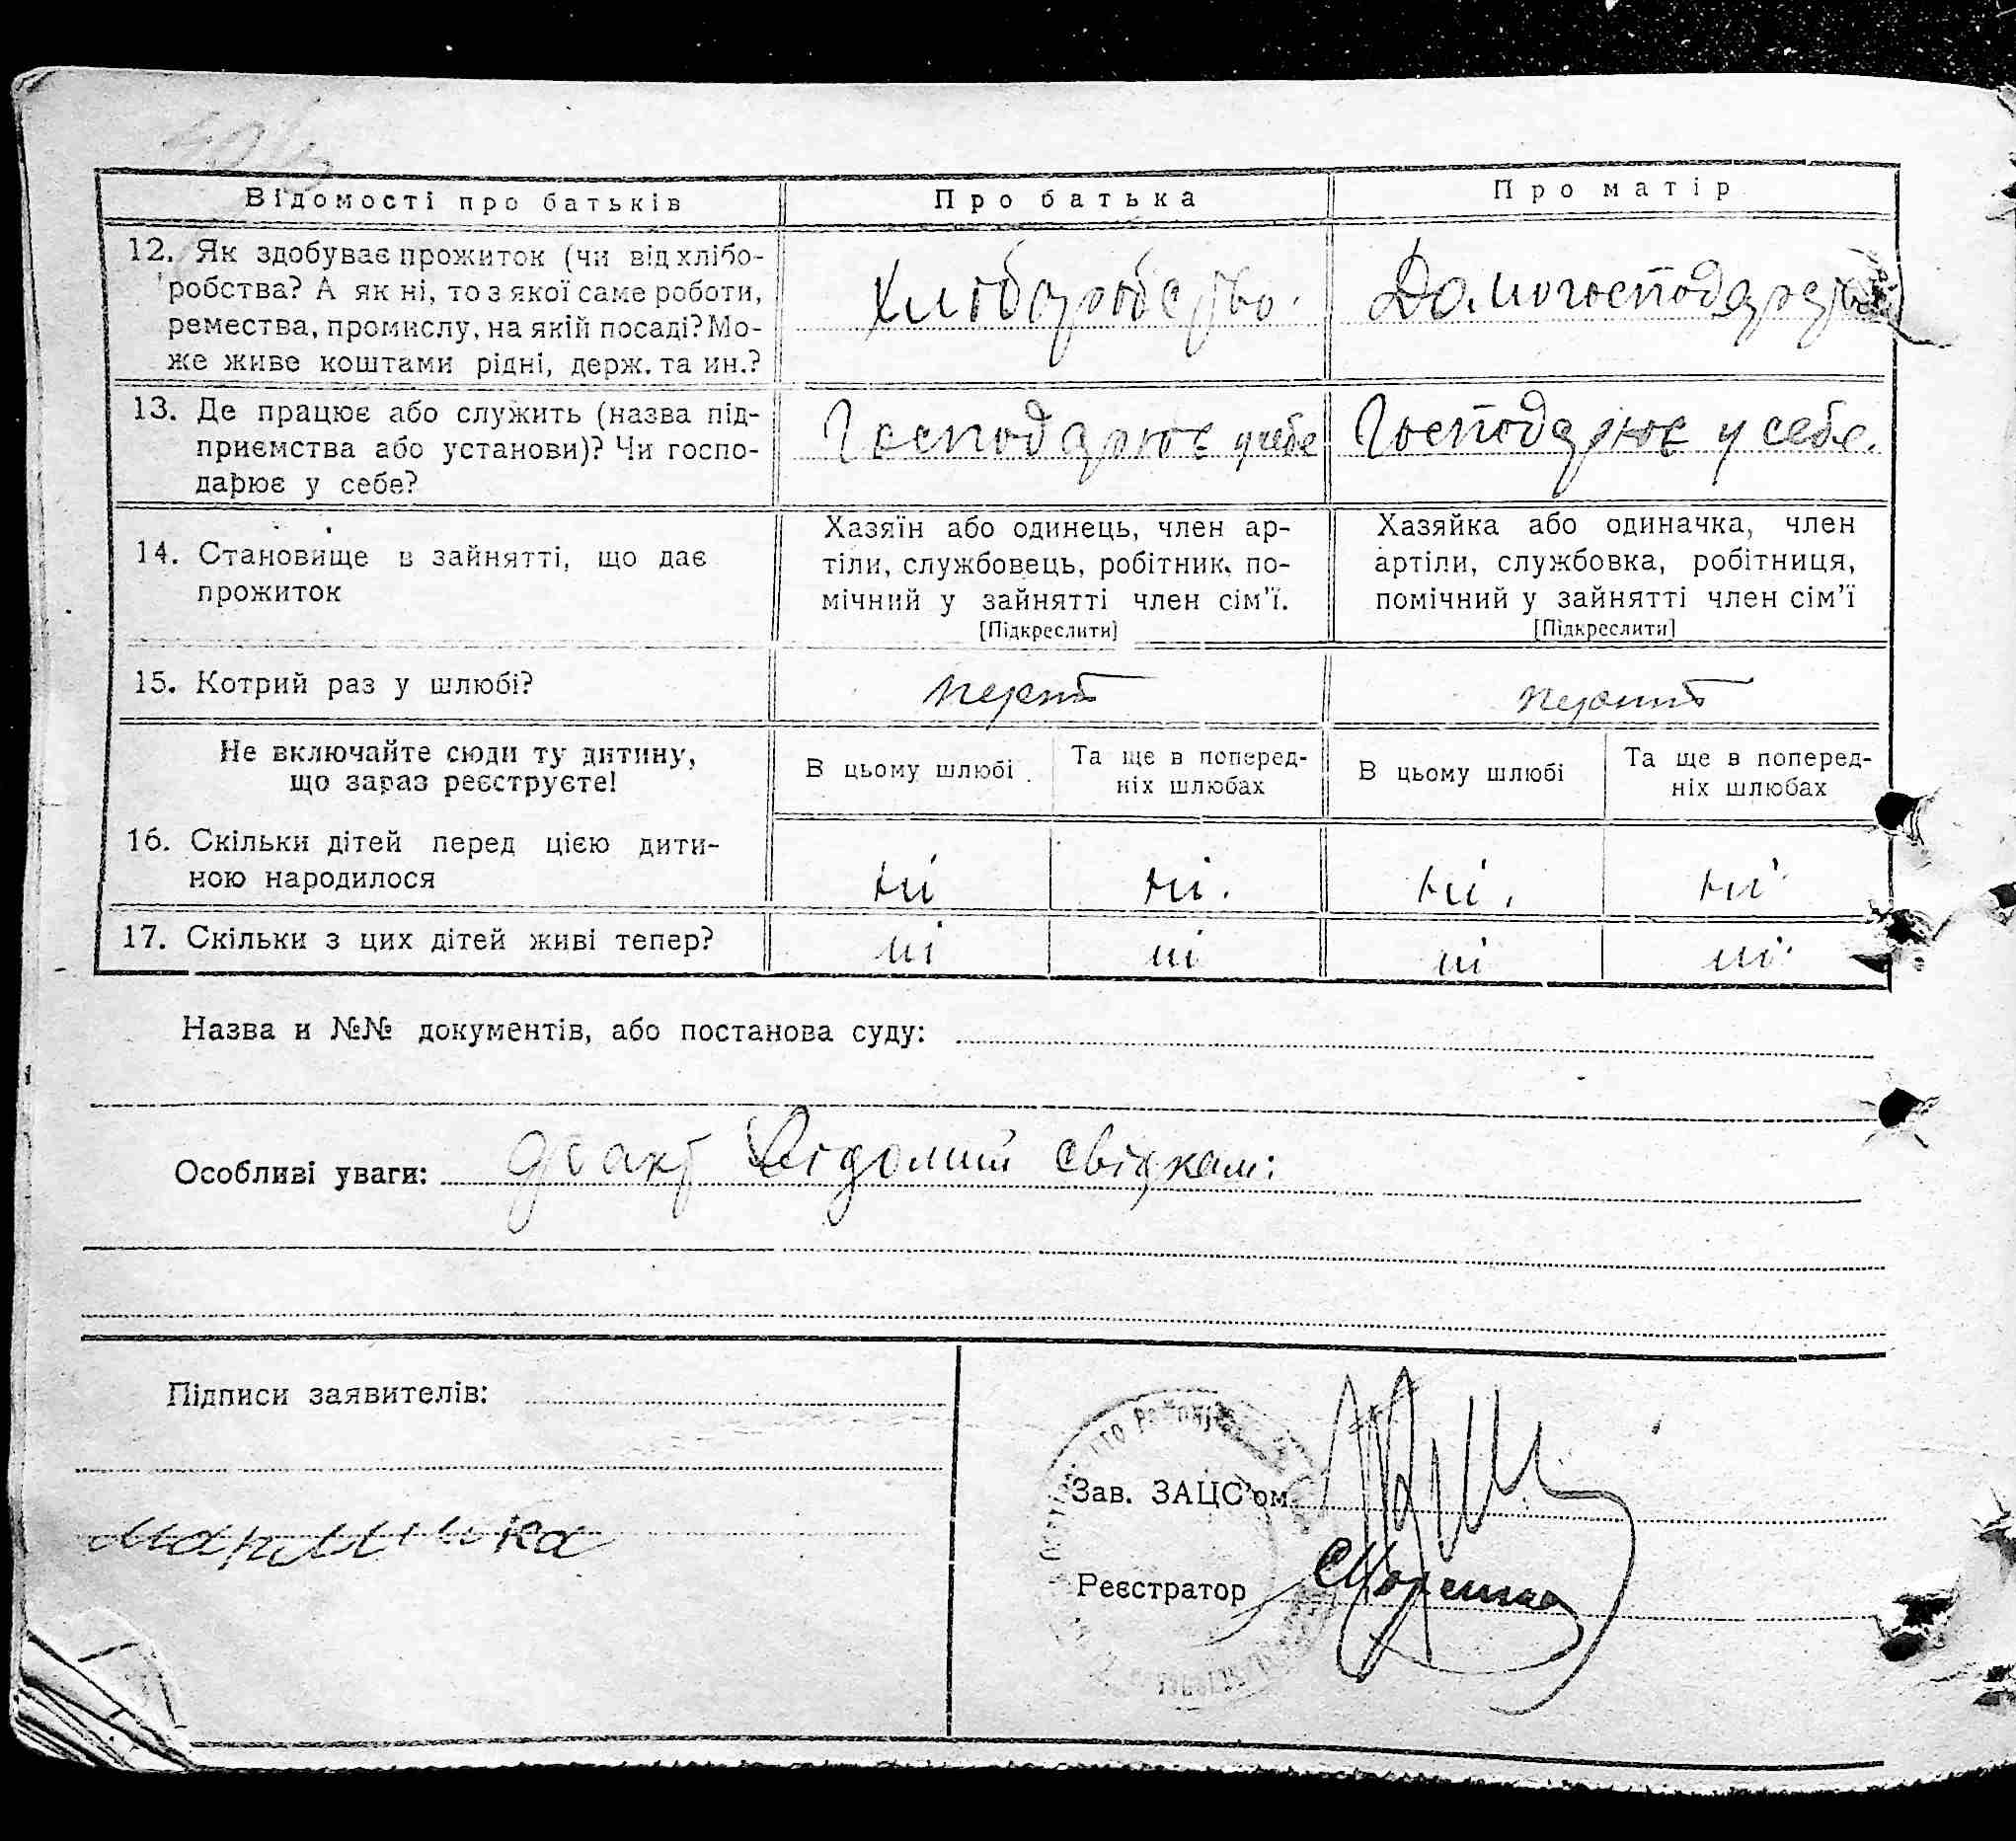 Відомості про батьків
Про батька
Про матір
12. Як здобуває прожиток (чи від хлібо-
робства? А як ні, то з якої саме роботи,
ремества, промислу, на якій посаді? Мо-
же живе коштами рідні, держ. та ин.?
Хліборобство.
Домогосподарство
13. Де працює або служить (назва під-
приємства або установи)? Чи госпо-
дарює у себе?
Господарює у себе
Господарює у себе.
14. Становище в зайнятті, що дає
прожиток
Хазяїн або одинець, член ар-
тіли, службовець, робітник, по-
мічний у зайнятті член сім'ї.
[Підкреслити]
Хазяйка або одиначка, член
артіли, службовка, робітниця,
помічний у зайнятті член сім'ї
[Підкреслити]
15. Котрий раз у шлюбі?
Не включайте сюди ту дитину,
що зараз реєструєте!
В цьому шлюбі
Та ще в поперед-
ніх шлюбах
В цьому шлюбі
Та ще в поперед-
ніх шлюбах
16. Скільки дітей перед цією дити-
ною народилося
ні
ні.
ні.
ні
17. Скільки з цих дітей живі тепер?
ні
ні
ні
ні
Назва и №№ документів, або постанова суду:
Особливі уваги: факт відомий свідкам:
Підписи заявителів:
Зав. ЗАЦС'ом
Реєстратор